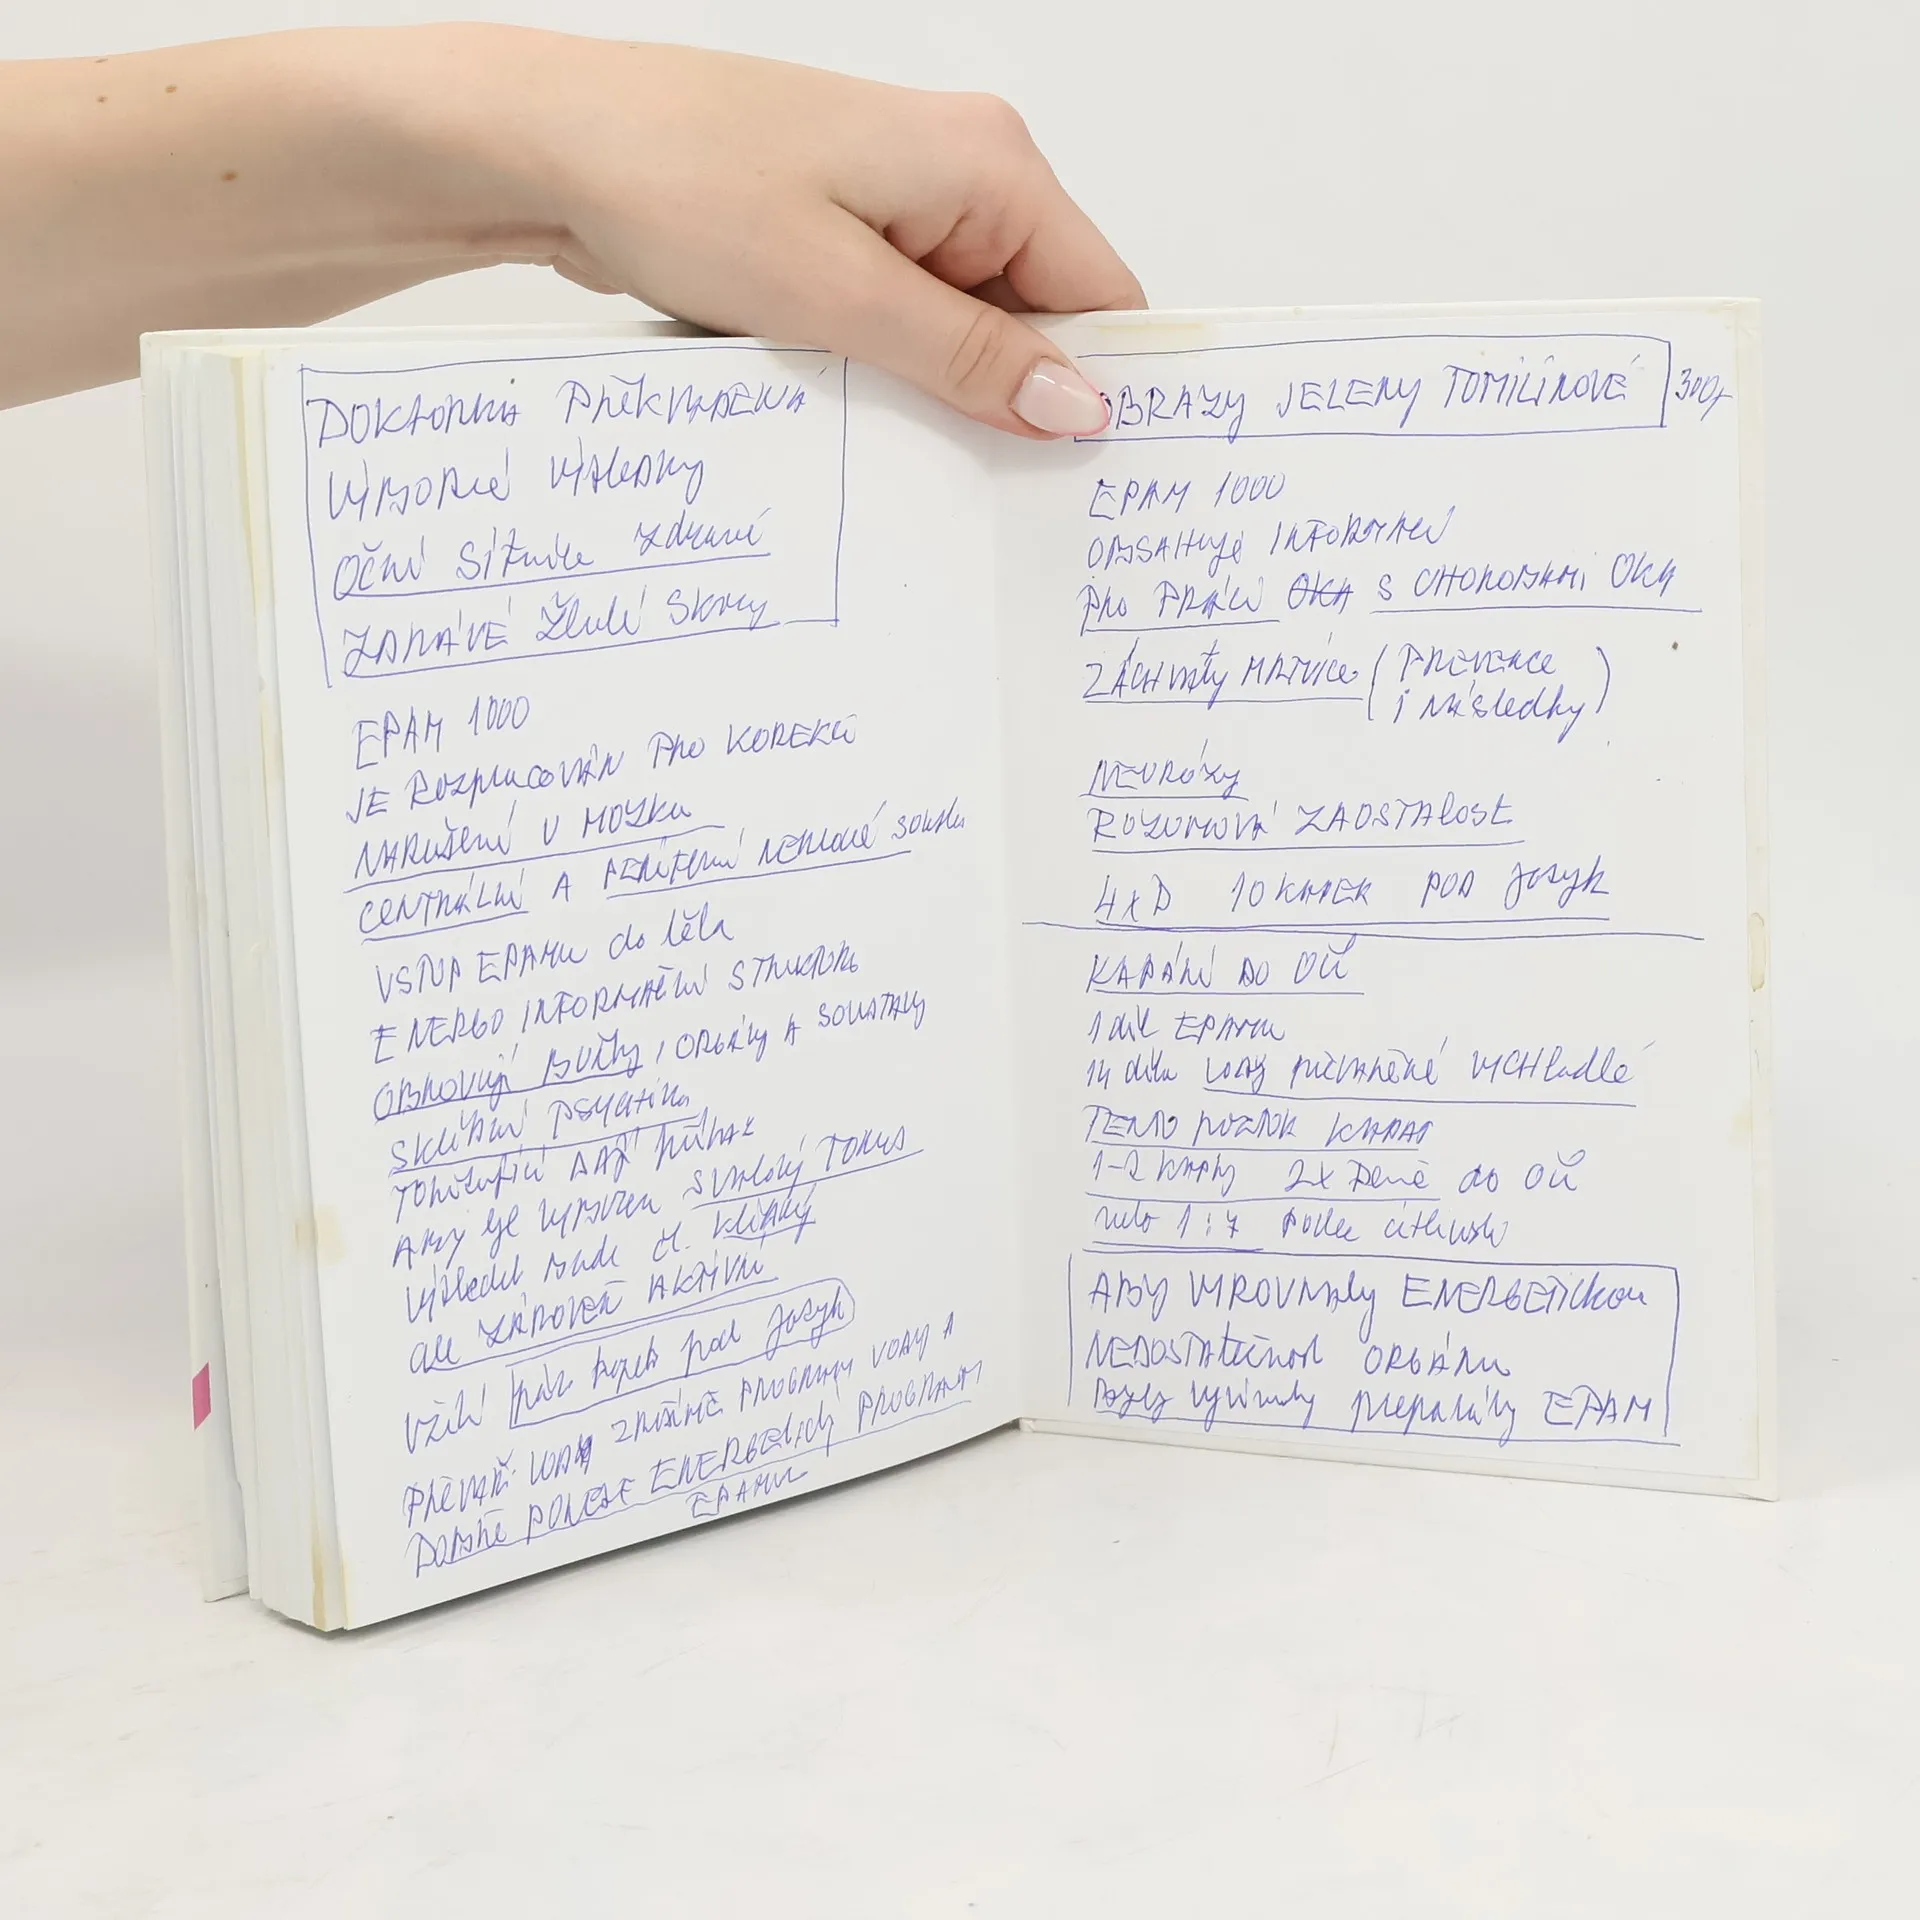 DOKTORKA PŘEKVAPENÁ
VÝBORNÉ VÝSLEDKY
OČNÍ SÍTNICE zdravé
ZDRAVÉ Žluté SKVRNY
EPAM 1000
JE ROZPRACOVÁN PRO KOREKCI
NARUŠENÍ V MOZKU
CENTRÁLNÍ A PERIFERNÍ NERVOVÉ SOUSTAVY
VSTUP EPAMU do těla
ENERGO INFORMAČNÍ STRUKTURA
OBNOVUJÍ BUŇKY, ORGÁNY A SOUSTAVY
SKLIDNÍ PSYCHIKA
DAJÍ PŘÍKAZ
ABY SE SVALOVÝ TONUS
VÝSLEDEK BUDE ČL. KLIDNÝ
ale ZÁROVEŇ AKTIVNÍ
VŽITÍ pár kapek pod jazyk
PŘEVAŘ. VODA PROGRAMY VODY A
DOBŘE PONESE ENERGETICKÝ PROGRAM
EPAMU
OBRAZY JELENY TOMILINOVÉ 300,-
EPAM 1000
OBSAHUJE INFORMACI
PRO PRÁCI OKA S CHOROBAMI OKA
ZÁCHVATY MRTVICE (PREVENCE
i následky)
NEURÓZY
ROZUMOVÁ ZAOSTALOST
4xD 10 KAPEK POD JAZYK
KAPÁNÍ DO OČÍ
1 díl EPAMU
14 dílů vody převařené VYCHladlé
TENTO ROZTOK KAPAT
1-2 KAPKY 2x Denně do OČÍ
nebo 1:7 podle citlivosti
ABY VYROVNALY ENERGETICKOU
NEDOSTATEČNOST ORGÁNU
byly vyvinuty preparáty EPAM